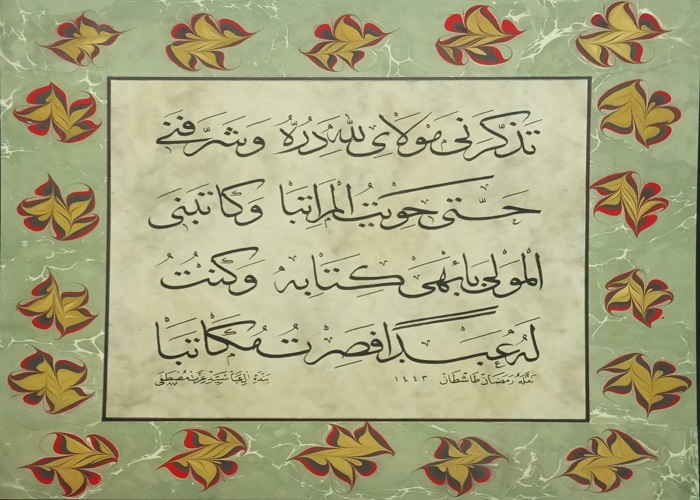 تَذَكَّرَنِي مَوْلَايَ لِلّٰهِ دَرُّهُ وَشَرَّفَنِي
حَتَّى حَوَيْتُ الْمَرَاتِبَا وَكَاتَبَنِي
الْمَوْلَى بِأَبْهَى كِتَابِهِ وَكُنْتُ
لَهُ عَبْدًا فَصِرْتُ مُكَاتَبَا
نمقه رمضان طاشطان ١٤٤٣